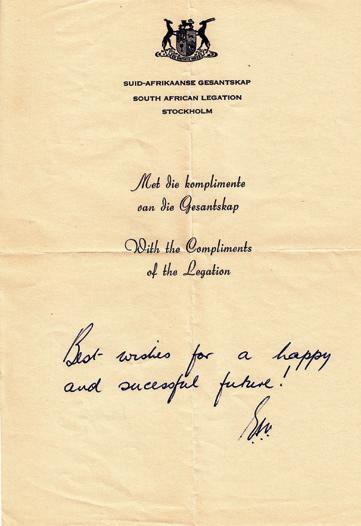 SUID-AFRIKAANSE GESANTSKAP
SOUTH AFRICAN LEGATION
STOCKHOLM
Met die komplimente
van die Gesantskap
With the Compliments
of the Legation
Best wishes for a happy
and sucessful future!